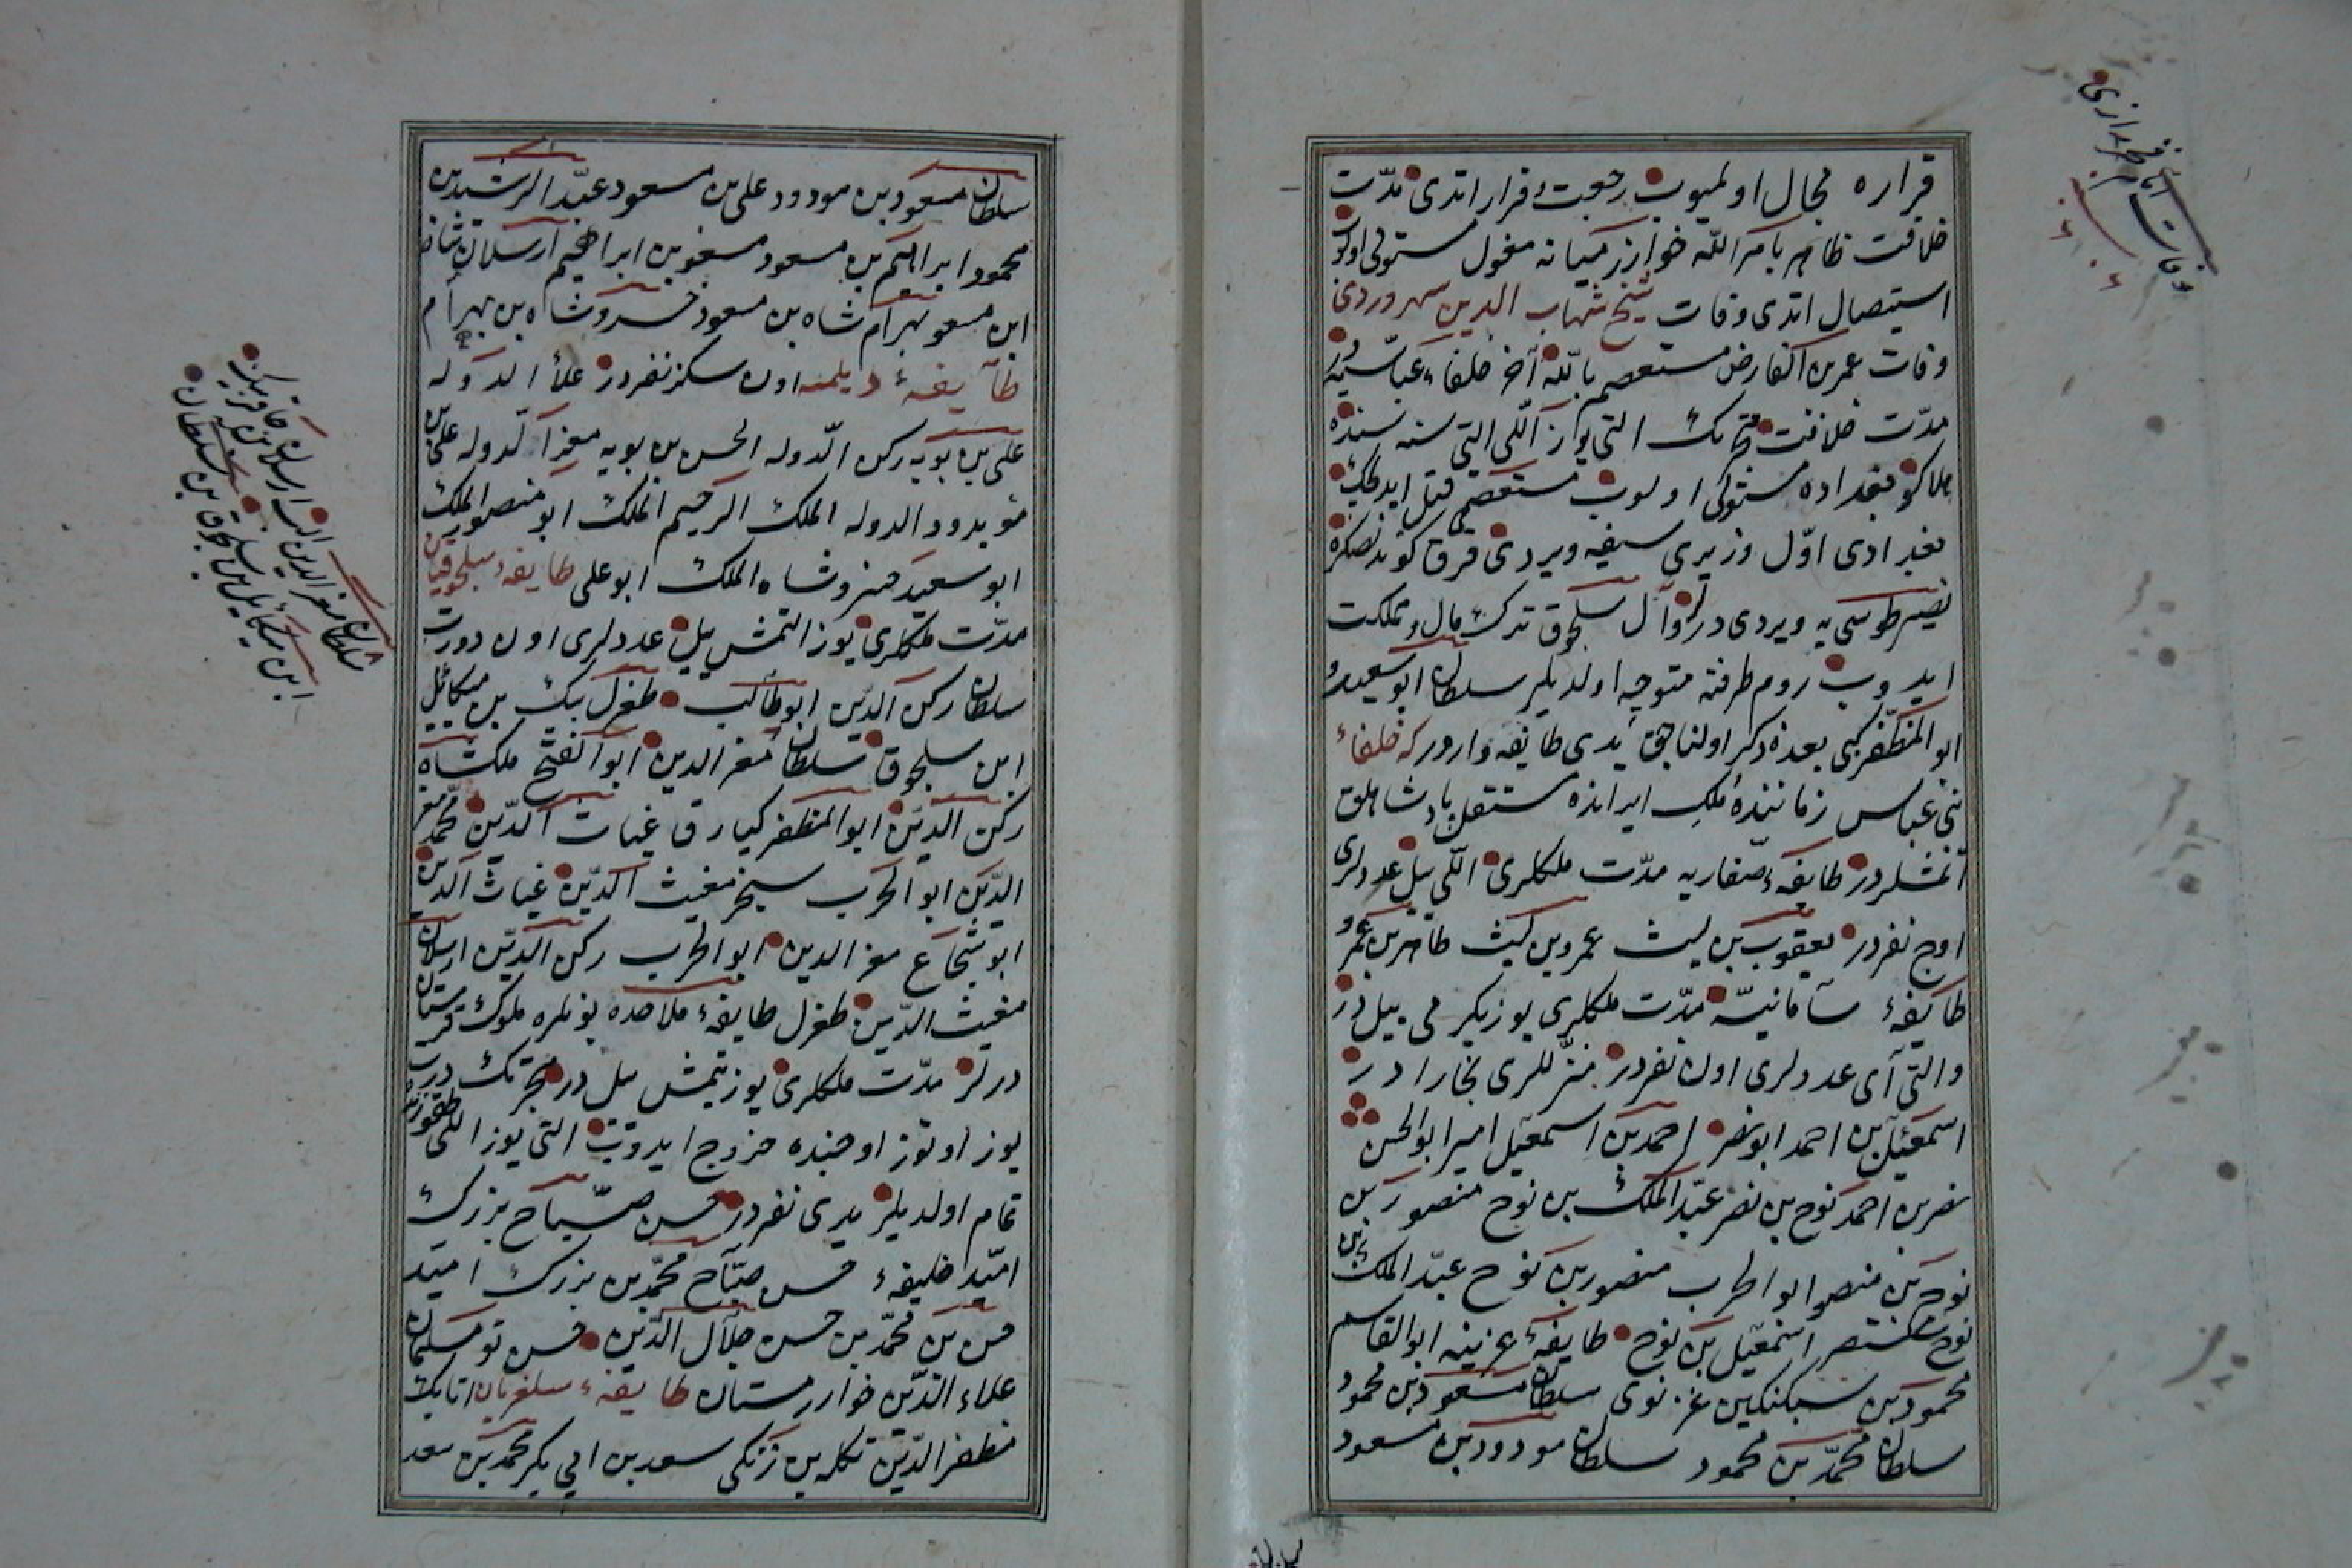 قراره مجال اولميوب رجعت و فرار اتدى مدّت
خلافت ظاهر بامر اللّه خوارزميانه مغول مستولى اولوب
استيصال اتدى وفات شيخ شهاب الدين سهروردى
وفات عمر بن الفارض مستعصم باللّه آخر خلفاء عبّاسيه در
مدّت خلافت هجرتك التى يوز اللى التى سنه سنده
هلاكو بغداده مستولى اولوب مستعصمى قتل ايدلك
بغدادى اوّل وزيرى سيفه ويردى فرق كوندنصكره
نصير طوسى يه ويردى درلر و آل سلجوق ترك مال و مملكت
ايدوب روم طرفنه متوجه اولديلر سلطان ابو سعيد و
ابو المظفر كبى بعده ذكر اولناجق يدى طايفه وارور كه خلفاء
بنى عباس زماننده ملك ايرانده مستقل پادشاهلق
اتمشلردر طايفهٔ صفاريه مدّت ملكلرى اللى ييل عددلرى
اوج نفردر يعقوب بن ليث عمرو بن ليث طاهر بن عمرو
طايفهٔ سامانيّه مدّت ملكلرى يوز يكرمى ييل در
والتى آى عددلرى اون نفردر منزللرى بخارا در
اسمعيل بن احمد ابو نصر احمد بن اسمعيل امير ابو الحسن
نصر بن احمد نوح بن نصر عبد الملك بن نوح منصور بن
نوح بن منصور ابو الحرب منصور بن نوح عبد الملك بن
نوح منتصر اسمعيل بن نوح طايفهٔ غزنيه ابو القاسم
محمود بن سبكتكين غزنوى سلطان مسعود بن محمود
سلطان محمّد بن محمود سلطان مودود بن مسعود
وفات امام فخر رازى
سلطان مسعود بن مودود على بن مسعود عبد الرشيد بن
محمود ابراهيم بن مسعود مسعود بن ابراهيم ارسلان شاه
ابن مسعود بهرام شاه بن مسعود خسرو شاه بن بهرام
طايفهٔ ديلمه اون سكز نفردر علأ الدوله
على بن بويه ركن الدوله الحسن بن بويه معز الدوله على بن
مؤيدود الدوله الملك الرحيم الملك ابو منصور الملك
ابو سعيد خسرو شاه الملك ابو على طايفهٔ سلجوقيان
مدّت ملكلرى يوز التمش ييل عددلرى اون دورت
سلطان ركن الدين ابو طالب طغرل بيك بن ميكائيل
ابن سلجوق سلطان معز الدين ابو الفتح ملكشاه
ركن الدين ابو المظفر كيارق غياث الدين محمد معز
الدين ابو الحرب سنجر مغيث الدين غياث الدين
ابو شجاع معز الدين ابو الحرب ركن الدين ارسلان
مغيث الدين طغرل طايفهٔ ملاحده بونلره ملوك قهستان
درلر مدّت ملكلرى يوز يتمش ييل در هجرتك درت
يوز اوتوز اوجنده خروج ايدوب التى يوز اللى طقوزده
تمام اولديلر يدى نفردر حسن صبّاح بزرك
اميّد خليفهٔ حسن صبّاح محمّد بن بزرك اميد
حسن بن محمّد بن حسن جلال الدّين حسن نو مسلمان
علاء الدّين خواررستان طايفهٔ سلغريان اتابك
مظفر الدّين تكله بن زنكى سعد بن ابى بكر محمد بن سعد
سلطان معز الدين الب ارسلان بن جاقر بيك
ابن ميكائيل بن سلجوق